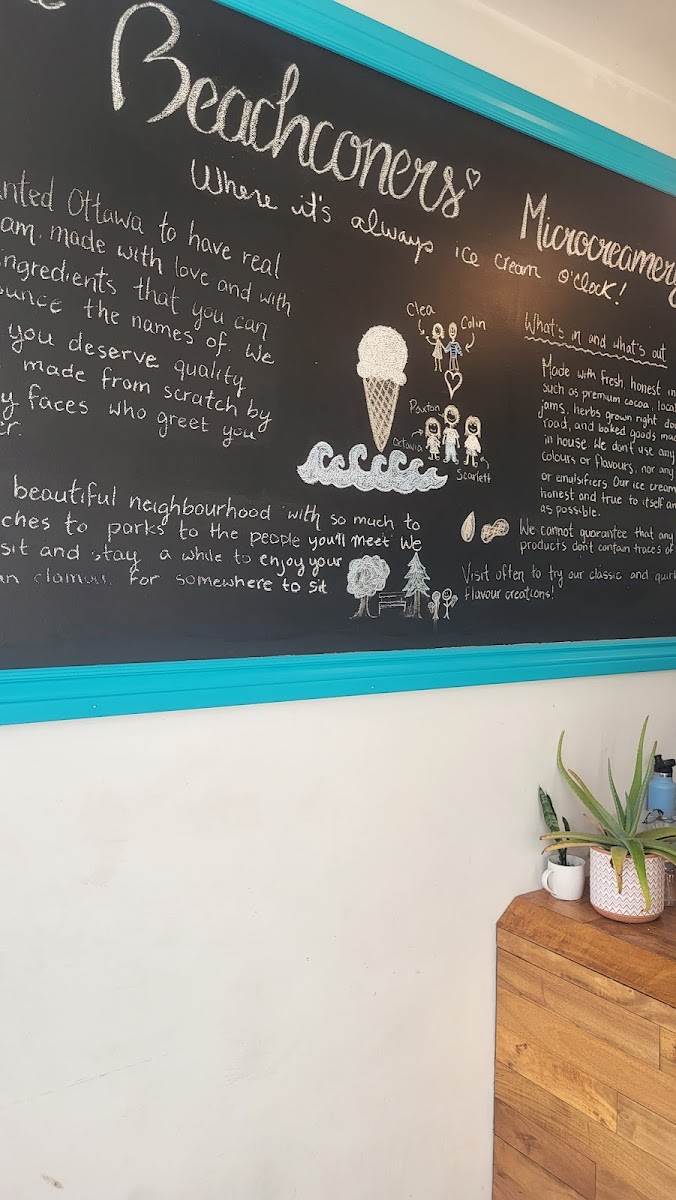 Beachconers
Microcreamery
Where it's always ice cream o'clock!
anted Ottawa to have real
am, made with love and with
ingredients that you can
ounce the names of. We
you deserve quality
made from scratch by
y faces who greet you
er.
beautiful neighbourhood with so much to
ches to parks to the people you'll meet We
sit and stay a while to enjoy your
an clamour for somewhere to sit
Clea
Colin
Paxton
Octavia
Scarlett
What's in and what's out
Made with fresh, honest in
such as premium cocoa, loca
jams, herbs grown right do
road, and baked goods ma
in house. We don't use any
colours or flavours, nor any
or emulsifiers. Our ice cream
honest and true to itself an
as possible.
We cannot guarantee that any
products don't contain traces of
Visit often to try our classic and quirk
flavour creations!